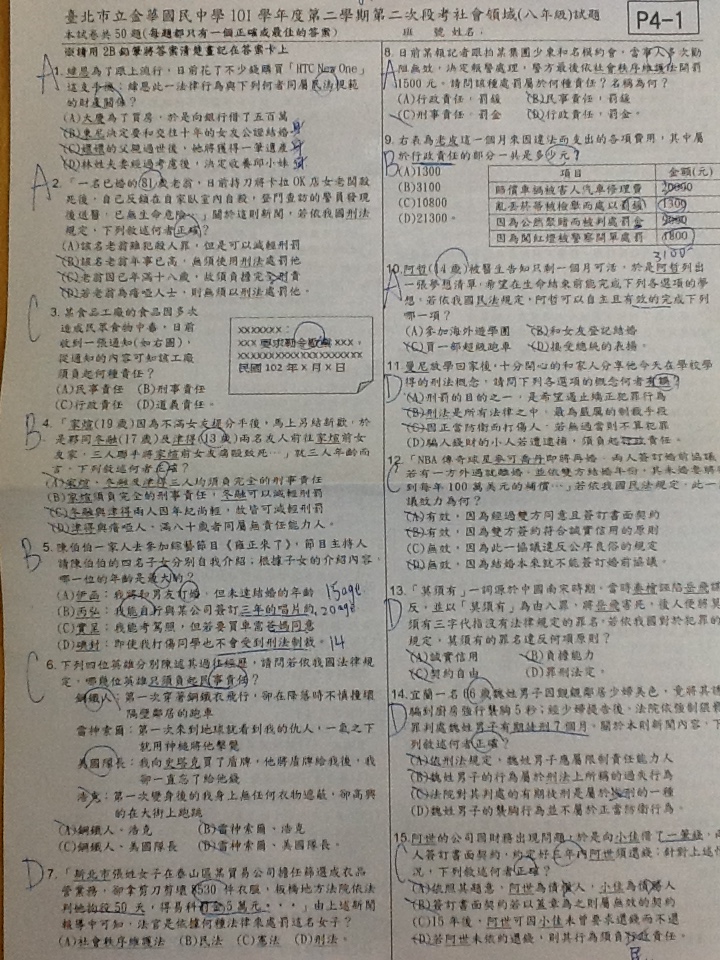 臺北市立金華國民中學101學年度第二學期第二次段考社會領域(八年級)試題
P4-1
本試卷共50題(每題都只有一個正確或最佳的答案) 班 號 姓名：
※請用2B鉛筆將答案清楚畫記在答案卡上
A
1.緯恩為了跟上流行，日前花了不少錢購買「HTC New One」
這支手機；緯恩此一法律行為與下列何者同屬民法規範
的財產關係？
(A)大慶為了買房，於是向銀行借了五百萬
(B)東尼決定要和交往十年的女友公證結婚
(C)禮禮的父親過世後，她將獲得一筆遺產
(D)林姓夫妻經過考慮後，決定收養邱小妹
A
2.「一名已婚的81歲老翁，日前持刀將卡拉OK店女老闆殺
死後，自己反鎖在自家臥室內自殺，登門查訪的警員發現
後送醫，已無生命危險。」關於這則新聞，若依我國刑法
規定，下列敘述何者正確？
(A)該名老翁雖犯殺人罪，但是可以減輕刑罰
(B)該名老翁年事已高，無須使用刑法處罰他
(C)老翁因已年滿十八歲，故須負擔完全刑責
(D)若老翁為瘖啞人士，則無須以刑法處罰他
C
3.某食品工廠的食品因多次
造成民眾食物中毒，日前
收到一張通知(如右圖)，
從通知的內容可知該工廠
須負起何種責任？
(A)民事責任 (B)刑事責任
(C)行政責任 (D)道義責任。
xxxxxxx：
xxx 要求勒令歇業 xxx，
xxxxxxxxxxxxxxxxxx
民國 102 年 X 月 X 日
B
4.「家煊(19歲)因為不滿女友提分手後，馬上另結新歡，於
是夥同冬融(17歲)及津得(13歲)兩名友人前往家煊前女
友家，三人聯手將家煊前女友痛毆致死…」就三人年齡而
言，下列敘述何者正確？
(A)家煊、冬融及津得三人均須負完全的刑事責任
(B)家煊須負完全的刑事責任，冬融可以減輕刑罰
(C)冬融與津得兩人因年紀尚輕，故皆可減輕刑罰
(D)津得與瘖啞人、滿八十歲者同屬無責任能力人。
B
5.陳伯伯一家人去參加綜藝節目《雍正來了》，節目主持人
請陳伯伯的四名子女分別自我介紹；根據子女的介紹內容，
哪一位的年齡是最大的？
(A)伊函：我將和男友訂婚，但未達結婚的年齡 15age
(B)丙弘：我能自行與某公司簽訂三年的唱片約，20age
(C)實足：我能考駕照，但若要買車需爸媽同意
(D)磺封：即使我打傷同學也不會受到刑法制裁。14
C
6.下列四位英雄分別陳述其過往經歷，請問若依我國法律規
定，哪幾位英雄只須負起民事責任？
鋼鐵人：第一次穿著鋼鐵衣飛行，卻在降落時不慎撞壞
隔壁鄰居的跑車
雷神索爾：第一次來到地球就看到我的仇人，一氣之下
就用神槌將他擊斃
美國隊長：我向史塔克買了盾牌，他將盾牌給我後，我
卻一直忘了給他錢
浩克：第一次變身後的我身上無任何衣物遮蔽，卻高興
的在大街上跑跳
(A)鋼鐵人、浩克 (B)雷神索爾、浩克
(C)鋼鐵人、美國隊長 (D)雷神索爾、美國隊長。
D
7.「新北市張姓女子在泰山區某貿易公司擔任篩選成衣品
管業務，卻拿剪刀剪壞530件衣服，板橋地方法院依法
判她拘役50天，得易科罰金5萬元。…」由上述新聞
報導中可知，法官是依據何種法律來處罰這名女子？
(A)社會秩序維護法 (B)民法 (C)憲法 (D)刑法。
8.日前某報記者跟拍某集團少東和名模約會，當事人多次勸
阻無效，決定報警處理，警方最後依社會秩序維護法開罰
1500元。請問該種處罰屬於何種責任？名稱為何？
(A)行政責任，罰鍰 (B)民事責任，罰鍰
(C)刑事責任，罰金 (D)行政責任，罰金。
B
9.右表為老皮這一個月來因違法而支出的各項費用，其中屬
於行政責任的部分一共是多少元？
(A)1300
(B)3100
(C)10800
(D)21300。
項目 金額(元)
賠償車禍被害人汽車修理費 20000
亂丟菸蒂被檢舉而處以罰鍰 1300
因為公然聚賭而被判處罰金 9000
因為闖紅燈被警察開單處罰 1800
3100
A
10.阿哲(14歲)被醫生告知只剩一個月可活，於是阿哲列出
一張夢想清單，希望在生命結束前能完成下列各選項的夢
想，若依我國民法規定，阿哲可以自主且有效的完成下列
哪一項？
(A)參加海外遊學團 (B)和女友登記結婚
(C)買一部超級跑車 (D)接受總統的表揚。
11.曼尼放學回家後，十分開心的和家人分享他今天在學校學
得的刑法概念，請問下列各選項的概念何者有誤？
(A)刑罰的目的之一，是希望遏止矯正犯罪行為
(B)刑法是所有法律之中，最為嚴厲的制裁手段
(C)因正當防衛而打傷人，若無過當則不算犯罪
(D)騙人錢財的小人若遭逮捕，須負起行政責任。
C
12.「NBA傳奇球星麥可喬丹即將再婚，兩人簽訂婚前協議
若有一方外遇就離婚，並依雙方結婚年份，其未婚妻將
到每年100萬美元的補償…」若依我國民法規定，此一
議效力為何？
(A)有效，因為經過雙方同意且簽訂書面契約
(B)有效，因為雙方簽約符合誠實信用的原則
(C)無效，因為此一協議違反公序良俗的規定
(D)無效，因為結婚本來就不能簽訂婚前協議。
D
13.「莫須有」一詞源於中國南宋時期，當時秦檜誣陷岳飛謀
反，並以「莫須有」為由入罪，將岳飛害死，後人便將莫
須有三字代指沒有法律規定的罪名。若依我國對於犯罪的
規定，莫須有的罪名違反何項原則？
(A)誠實信用 (B)負擔能力
(C)契約自由 (D)罪刑法定。
D
14.宜蘭一名66歲魏姓男子因覬覦鄰居少婦美色，竟將其
騙到廚房強行襲胸5秒；經少婦提告後，法院依強制猥褻
罪判處魏姓男子有期徒刑7個月。關於本則新聞內容，下
列敘述何者正確？
(A)依刑法規定，魏姓男子應屬限制責任能力人
(B)魏姓男子的行為屬於刑法上所稱的過失行為
(C)法院對其判處的有期徒刑是屬於從刑的一種
(D)魏姓男子的襲胸行為並不屬於正當防衛行為。
C
15.阿世的公司因財務出現問題，於是向小佳借了一筆錢，兩
人簽訂書面契約，約定好三年內阿世須還錢；針對上述情
況，下列敘述何者正確？
(A)依照其題意，阿世為債權人，小佳為債務人
(B)簽訂書面契約若以蓋章為之則屬無效的契約
(C)15年後，阿世可因小佳未曾要求還錢而不還
(D)若阿世未依約還錢，則其行為須負行政責任。
民